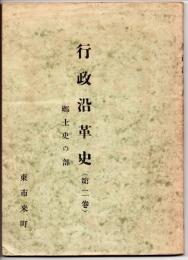 行政沿革史(第二卷)
郷土史の部
東市来町